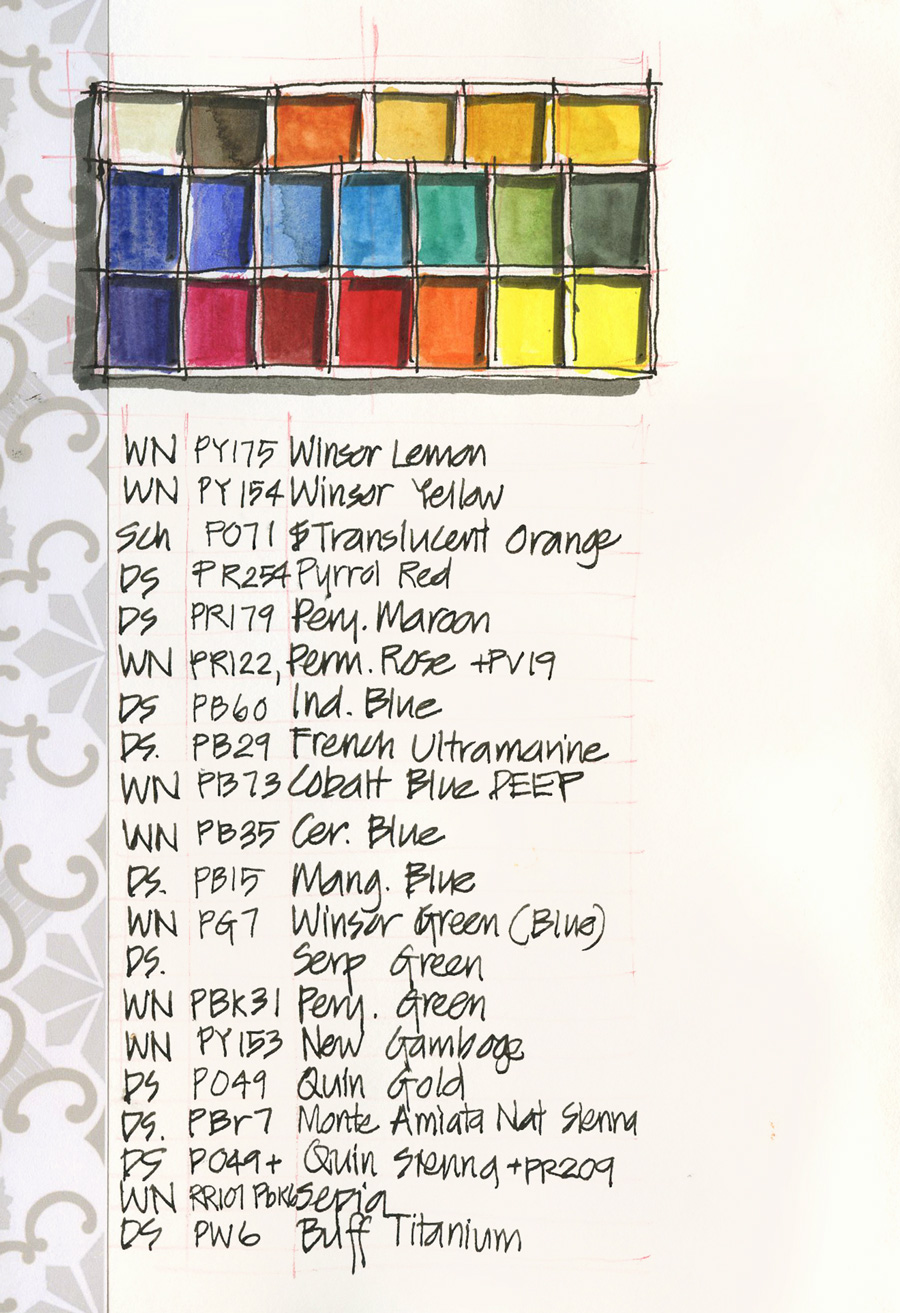 WN PY175 Winsor Lemon
WN PY154 Winsor Yellow
Sch PO71 Translucent Orange
DS PR254 Pyrrol Red
DS PR179 Pery. Maroon
WN PR122, Perm. Rose +PV19
DS PB60 Ind. Blue
DS. PB29 French Ultramarine
WN PB73 Cobalt Blue DEEP
WN PB35 Cer. Blue
DS. PB15 Mang. Blue
WN PG7 Winsor Green (Blue)
DS. Serp Green
WN PBk31 Pery. Green
WN PY153 New Gamboge
DS PO49 Quin Gold
DS. PBr7 Monte Amiata Nat Sienna
DS PO49+ Quin Sienna +PR209
WN RR101 PbK6 Sepia
DS PW6 Buff Titanium